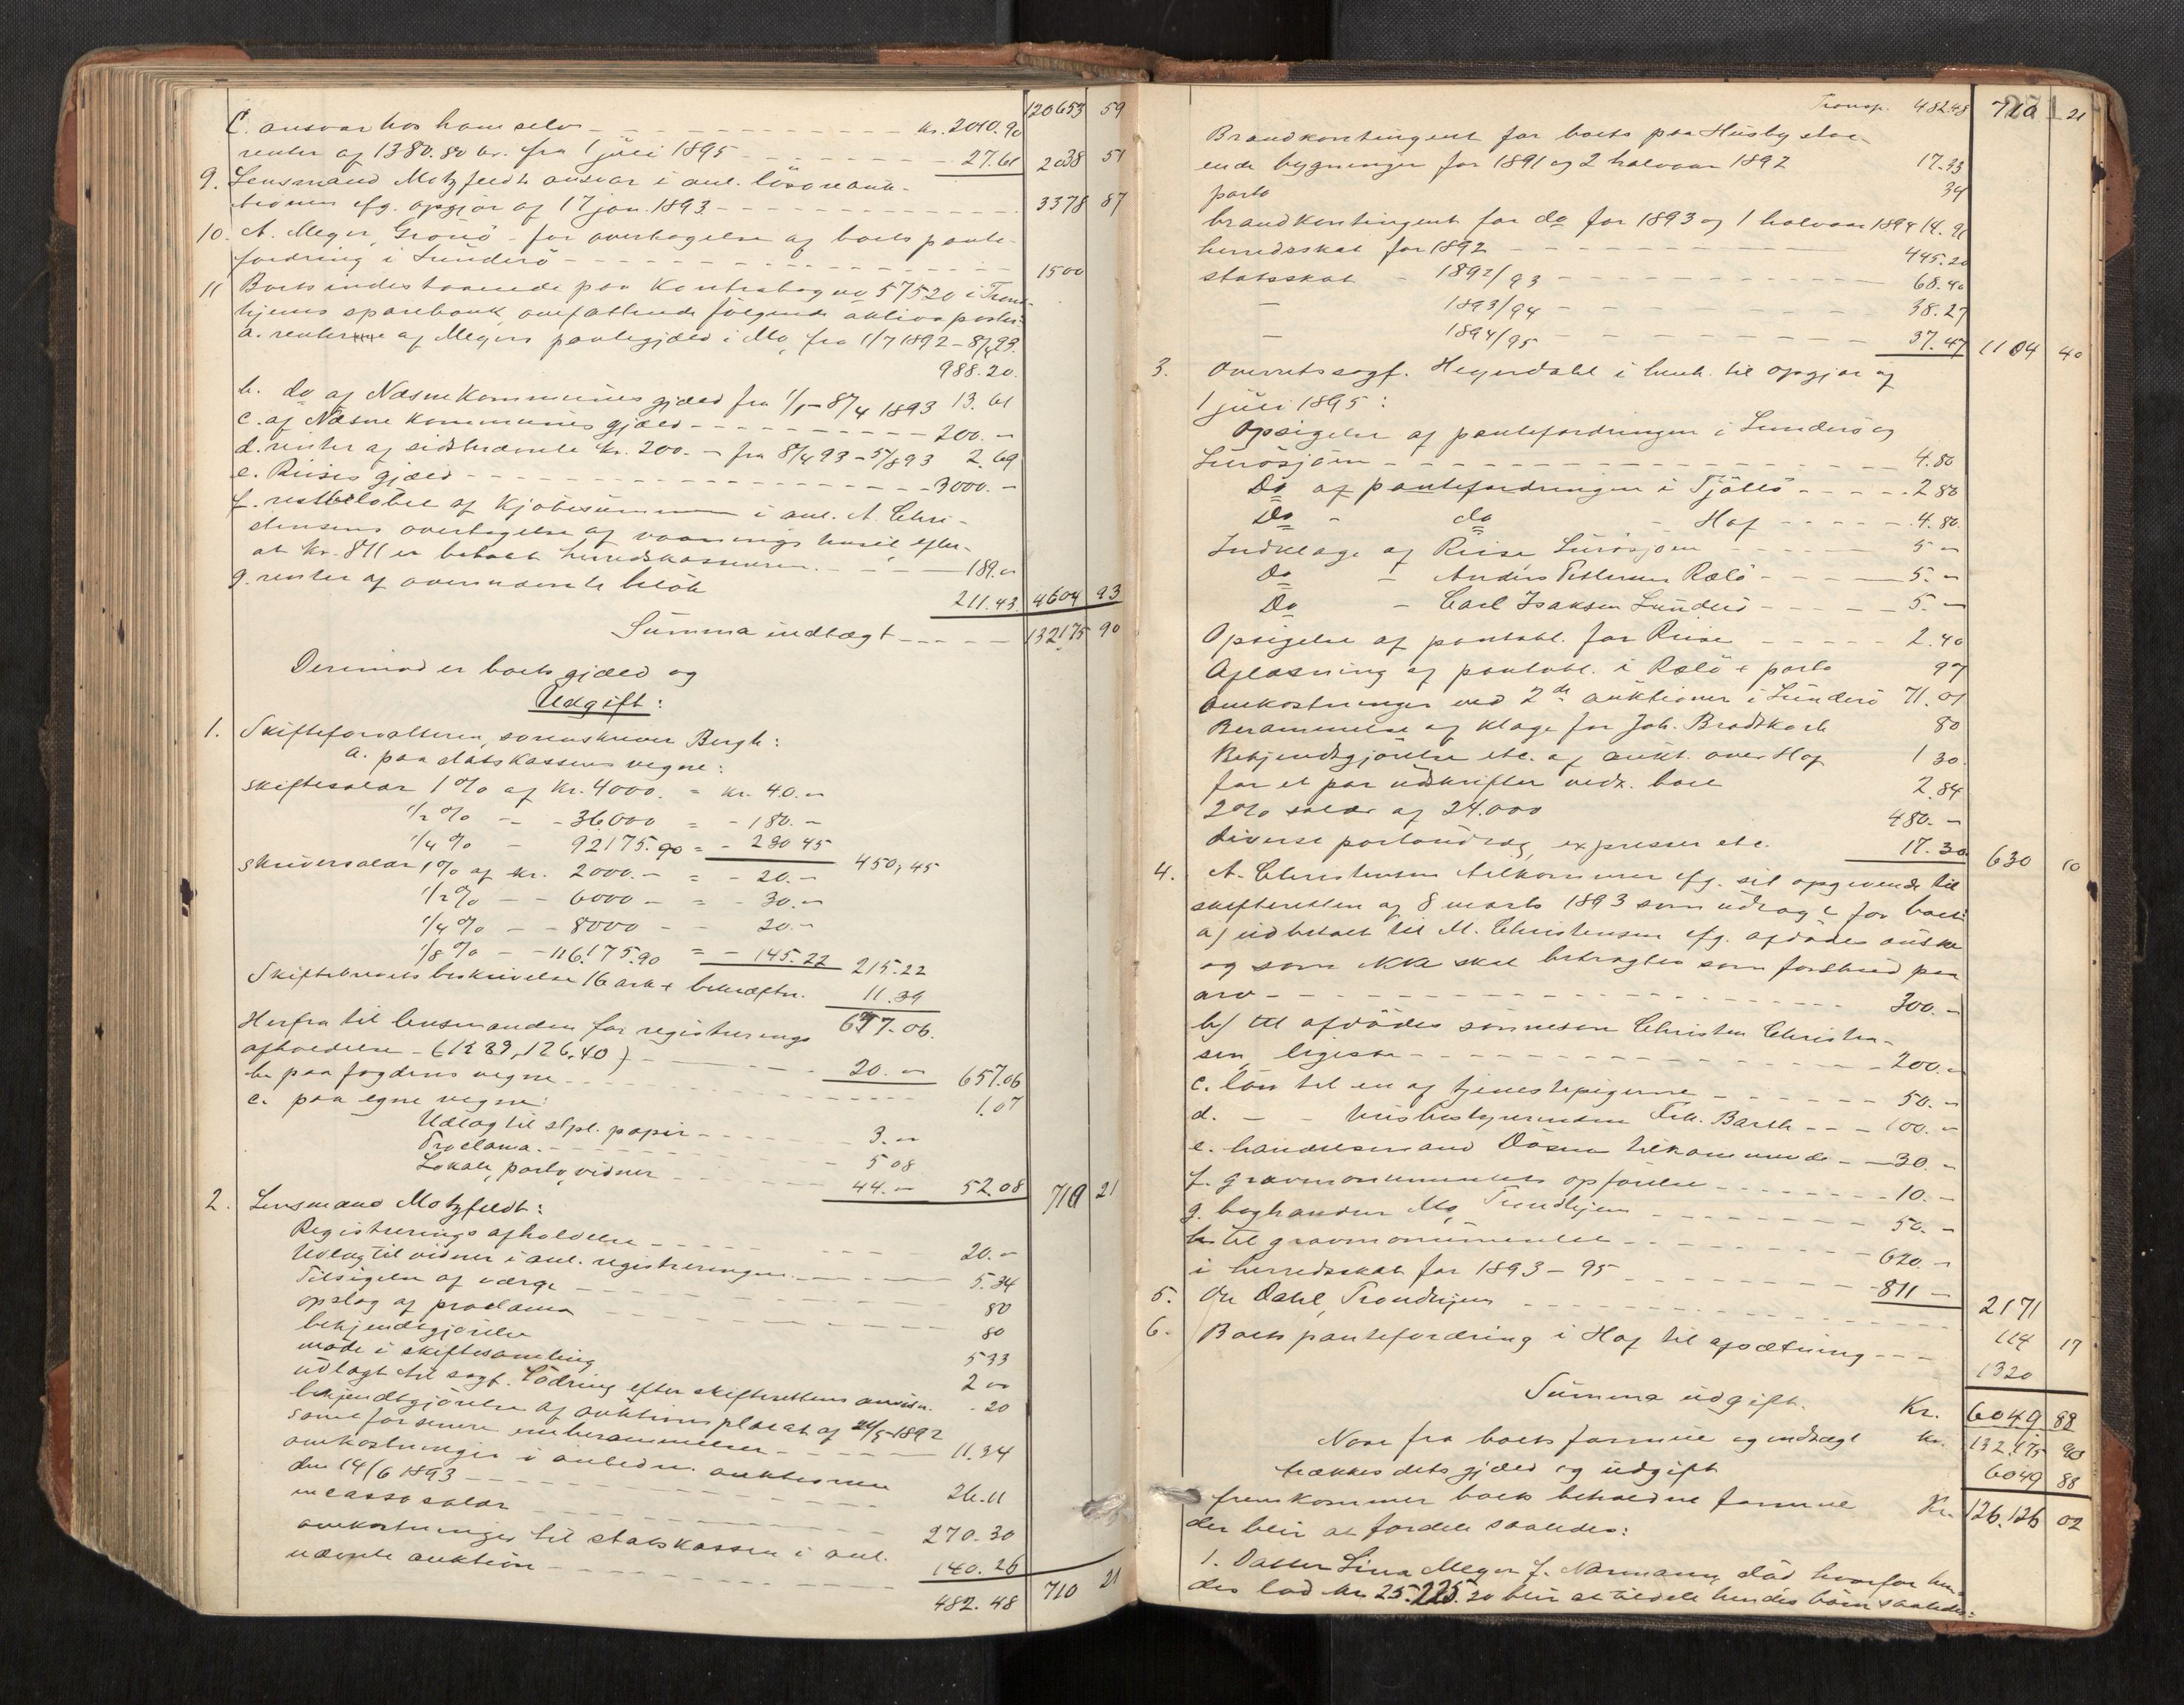 120653 59
C. ansvar hos ham selv kr. 2010.90
renter af 1380.80 kr. fra 1 juli 1895 27.61 2038 51
9. Lensmand Motzfeldts ansvar i anl. løsøreauk-
tionen ifg. opgjør af 17 jan. 1893 3378 87
10. A. Meyer, Grønø - for overtagelse af boets pante-
fordring i Sunderø 1500
11 Boets indestaaende paa Kontrabog no 57520 i Trond-
hjems sparebank omfattende følgende aktivaposter:
a. renterne af Meyers pantegjæld i Mo, fra 1/7 1892 - 8/4 93.
988.20.
b. do af Næsne kommunes gjæld fra 1/1 - 8/4 1893 13.61
c. af Næsne kommunes gjæld 200. -
d. renter af sidstnævnte kr. 200. - fra 8/4 93 - 5/8 93 2.69
e. Riises gjæld 3000. -
f. restbeløbet af kjøbesummen i anl. A. Chri-
stensens overtagelse af vaaningshuset efter-
at kr. 811 er betalt herredskassereren. 189. -
g. renter af ovennævnte beløb 211.43 4604 93
Summa indtægt 132175 90
Derimod er boets gjæld og
Udgift:
1. Skifteforvalteren, sorenskriver Bergh:
a. paa statskassens vegne:
skiftesalær 1 % af kr. 4000. = kr. 40. -
1/2 % - - 36000 = - 180. -
1/4 % - 92175.90 = - 230 45 450,45
skriversalær 1 % af kr. 2000. - = - 20. -
1/2 % - - 6000 - = - 30. -
1/4 % - - 8000 - - 20. -
1/8 % - - 116.175.90 = - 145.22 215.22
Skiftebrevets beskrivelse 16 ark + bekræftn. 11.39
677.06.
Herfra til lensmanden for registrerings
afholdelse - (1289,126,40) 20. - 657.06
b. paa fogdens vegne 1.07
c. paa egne vegne:
Udlæg til stpl. papir 3. -
Proclama. 5 08
Lokale, porto, vidner 44. - 52.08 710 21
2. Lensmand Motzfeldt:
Registrerings afholdelse 20. -
Udlæg til vidner i anl. registreringen 5.34
Tilsigelse af værge 80
opslag af proclama 80
bekjendtgjørelse 533
møde i skiftesamling 2 -
udlagt til sagf. Lødring efter skifterettens anvisn. - 20
bekjendtgjørelse af auktionsplacat af 24/5 - 1892
samt for senere omberammelser 11.34
omkostninger i anledn. auktionen
den 14/6 1893 26.11
incassosalær 270.30
omkostninger til statskassen i anl.
nævnte auktion 140.26
482.48 710 21
Transp. 482.48 710 21
Brandkontingent for boets paa Husby staa-
ende bygninger for 1891 og 2 halvaar 1892 17.33
porto 34
brandkontingent for do for 1893 og 1 halvaar 1894 14.91
herredsskat for 1892 445.20
statsskat - 1892/93 68.40
- 1893/94 38.27
- 1894/95 37.47 1104 40
3. Overretssagf. Heyerdahl i henh. til opgjør af
1 juli 1895:
Opsigelse af pantefordringen i Sunderø og
Lurøsjøen 4.80
Do af pantefordringen i Tjøttø 2 80
Do - do - Hof 4.80.
Indklage af Riise Lurøsjøen 5 -
Do - Anders Pettersen Rølø 5. -
Do - Carl Isaksen Sunderø 5. -
Opsigelse af pantobl. for Riise 2.40
Aflæsning af pantobl. i Rølø + porto 97
Omkostninger ved 2de auktioner i Sunderø 71.01
Berammelse af klage for Joh. Brodtkorb 80
Bekjendtgjørelse etc. af aukt. over Hof 1 30.
for et par udskrifter vedr. boet 2.84
2 % salær af 24.000 480. -
diverse portoudlæg, expresser etc. 17.30 630 10
4. A. Christensen tilkommer ifg. sit opgivende til
skifteretten af 8 marts 1893 som udlagt for boet:
a) udbetalt til M. Christensen ifg. afdødes ønske
og som ikke skal betragtes som forskud paa
arv 300. -
b) til afdødes sønnesøn Christen Christen-
sen, ligesaa 200. -
c. løn til en af tjenestepigerne 50. -
d. - - husbestyrerinden Frk. Barth 100. -
e. handelsmand Dåsen tilkommende 30. -
f. gravmonumentets opførelse 10. -
g. boghandler Mo, Trondhjem 50. -
h. til gravmonumentet 620. -
i herredsskat for 1893 - 95 811 - 2171
5. Ole Dahl, Trondhjem 114 17
6. Boets pantefordring i Hof til afsætning 1320
Summa udgift. Kr. 6049 88
Naar fra boets formue og indtægt kr. 132.175 90
trækkes dets gjæld og udgift 6049 88
fremkommer boets beholdne formue Kr. 126.126 02
der blir at fordele saaledes:
1. Datter Lina Meyer f. Normann, død hvorfor hen-
des lod kr. 25.225.20 blir at tildele hendes børn saaledes: